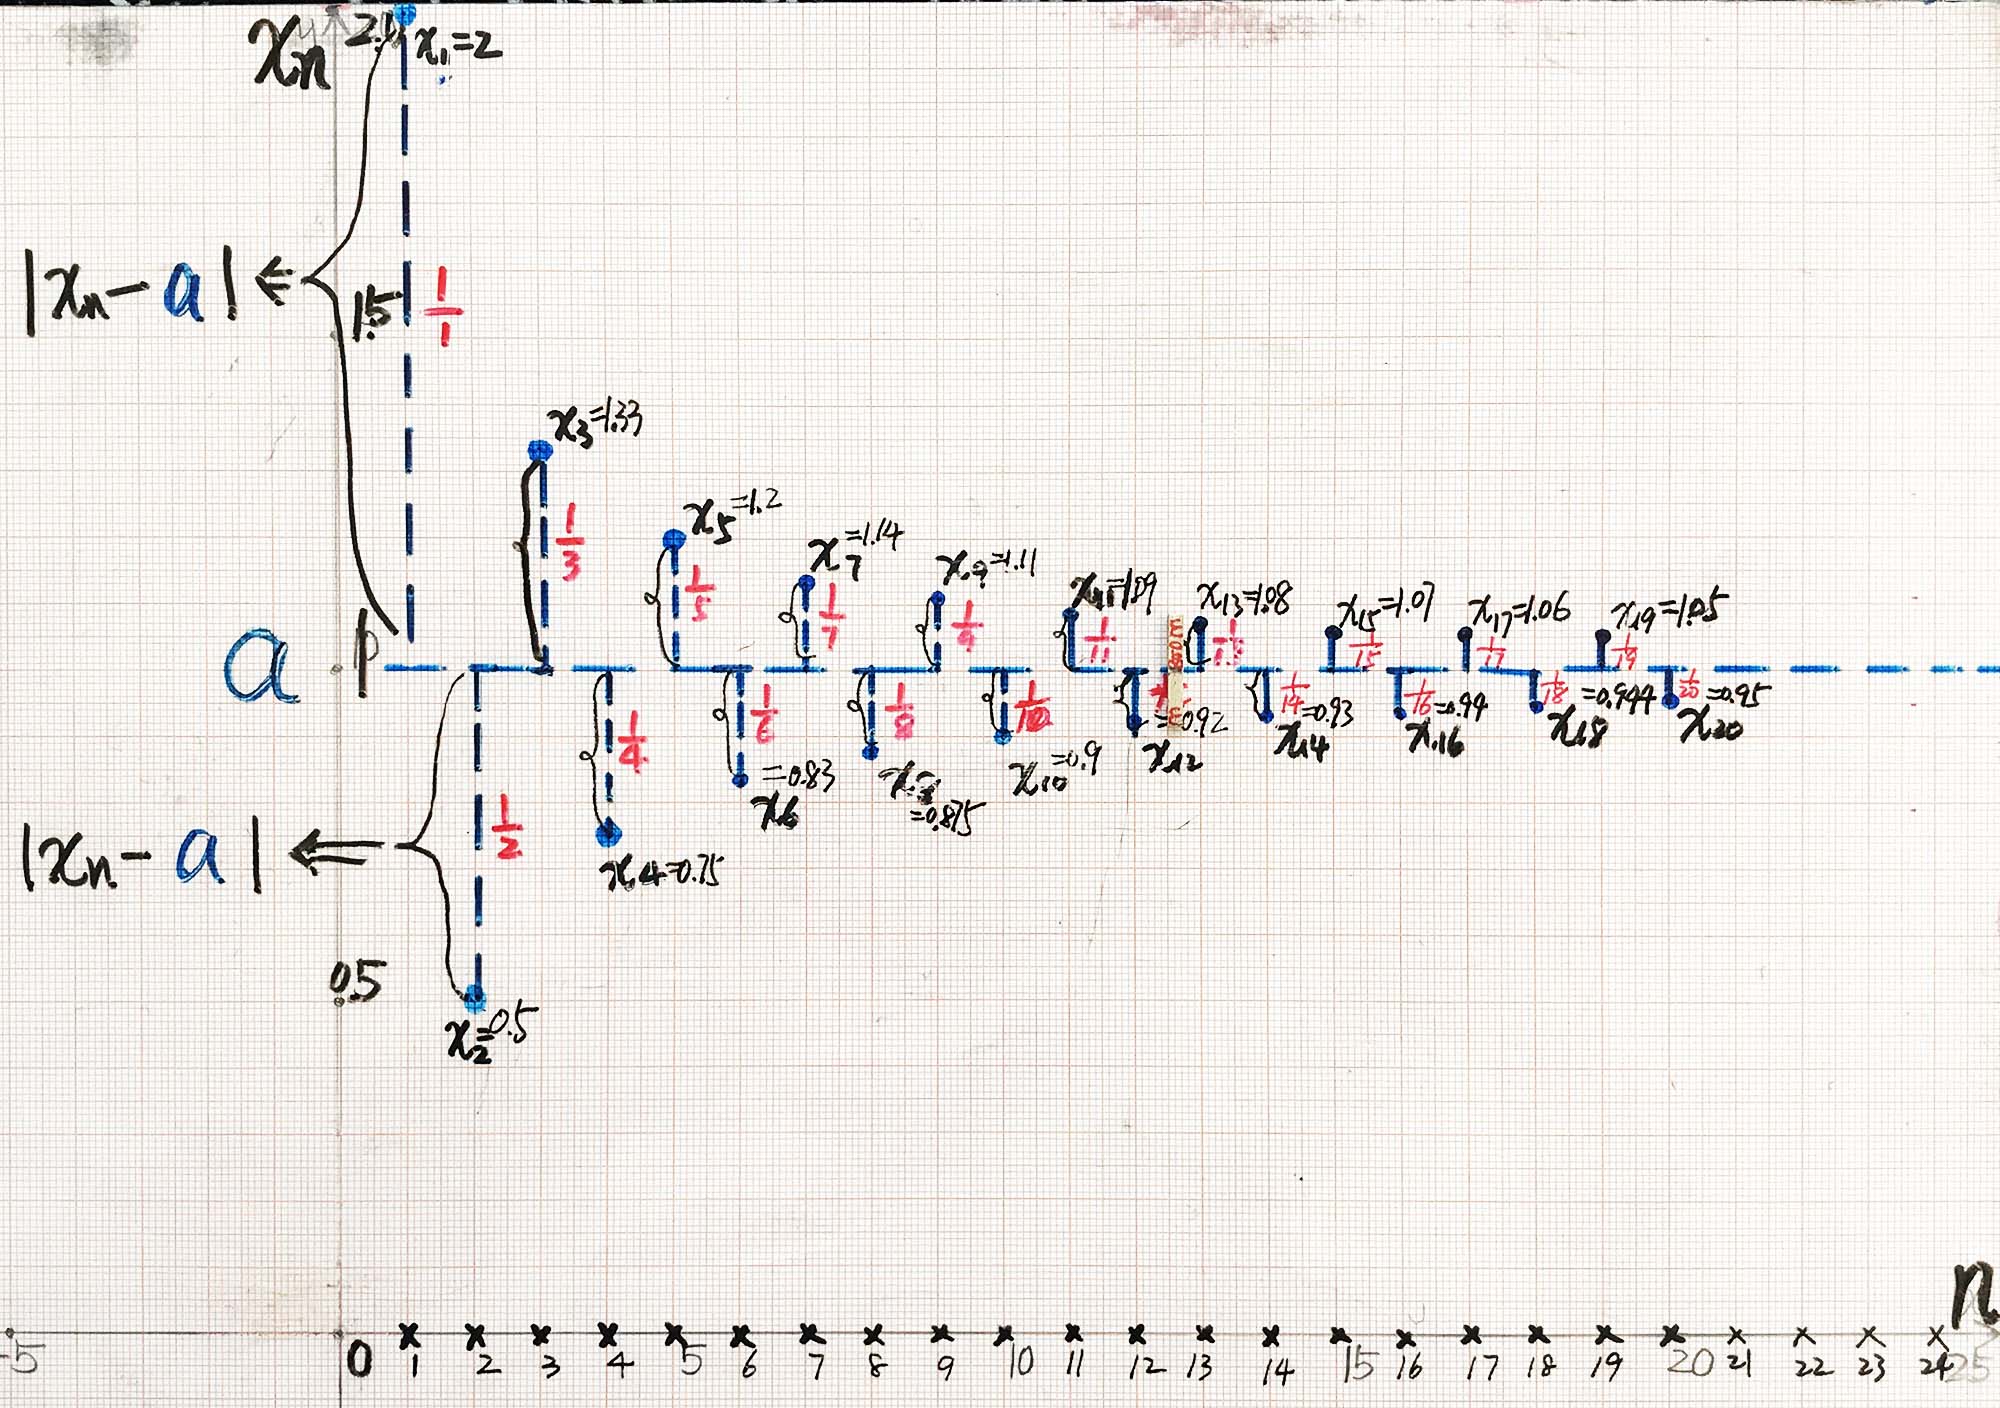 xₙ 2.0 x₁=2
|xₙ-a| ⇐ 1.5 1/1
x₃=1.33
1/3
x₅=1.2
1/5
x₇=1.14
1/7
x.9=1.11
1/9
x₁₁=1.09
1/11
x₁₃=1.08
1/13
x₁₅=1.07
1/15
x₁₇=1.06
1/17
x₁₉=1.05
1/19
a 1
|xₙ-a| ⇐ 1/2
x₂=0.5
1/4
x.4=0.75
1/6
=0.83
x₆
1/8
x₈
=0.875
1/10
x₁₀=0.9
=0.92
x₁₂
1/14
=0.93
x₁₄
1/16
=0.94
x₁₆
1/18
=0.944
x₁₈
1/20
=0.95
x₂₀
0.5
n
-5 0 1 2 3 4 5 6 7 8 9 10 11 12 13 14 15 16 17 18 19 20 21 22 23 24 25